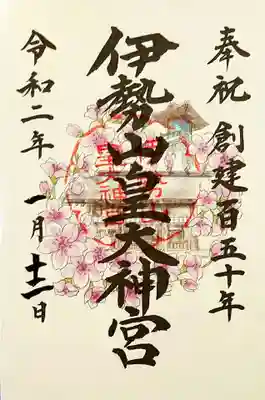 奉祝 創建百五十年
伊勢山皇大神宮
令和二年 一月 十二日